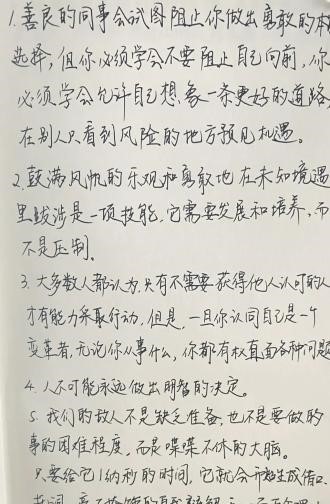 1.善良的同事会试图阻止你做出勇敢的
选择,但你必须学会不要阻止自己向前,你
必须学会允许自己想象一条更好的道路,
在别人只看到风险的地方预见机遇。
2.鼓满风帆的乐观和勇敢地在未知境遇
里跋涉是一项技能,它需要发展和培养,而
不是压制。
3.大多数人都认为,只有不需要获得他人认可的人
才有能力采取行动,但是,一旦你认同自己是一个
变革者,无论你从事什么,你都有权直面各种问题
4.人不可能永远做出明智的决定。
5.我们的敌人不是缺乏准备,也不是要做的
事的困难程度,而是喋喋不休的大脑。
只要给它1纳秒的时间,它就会开始生成借口